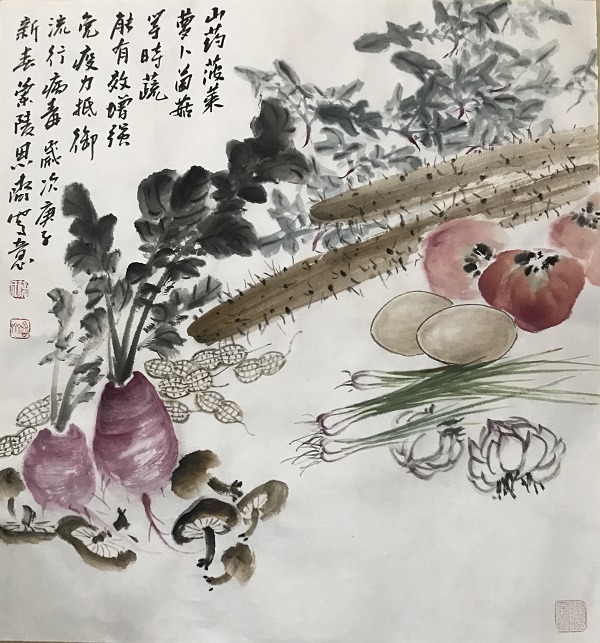 山药菠菜
萝卜菌菇
等時蔬
能有效增强
免疫力抵御
流行病毒歲次庚子
新春陵思写意